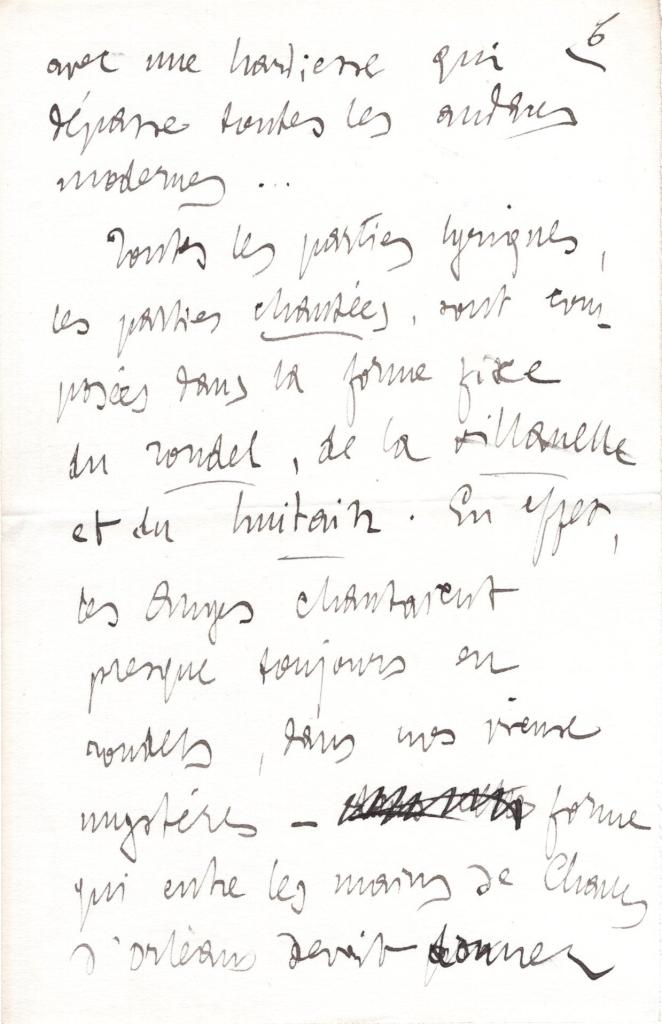 6
avec une hardiesse qui
dépasse toutes les audaces
modernes...
Toutes les parties lyriques,
les parties chantées, sont com-
posées dans la forme fixe
du rondel, de la villanelle
et du huitain. En effet,
les Anges chantaient
presque toujours en
rondels, dans nos vieux
mystères — forme
qui entre les mains de Charles
d'Orléans devait donner